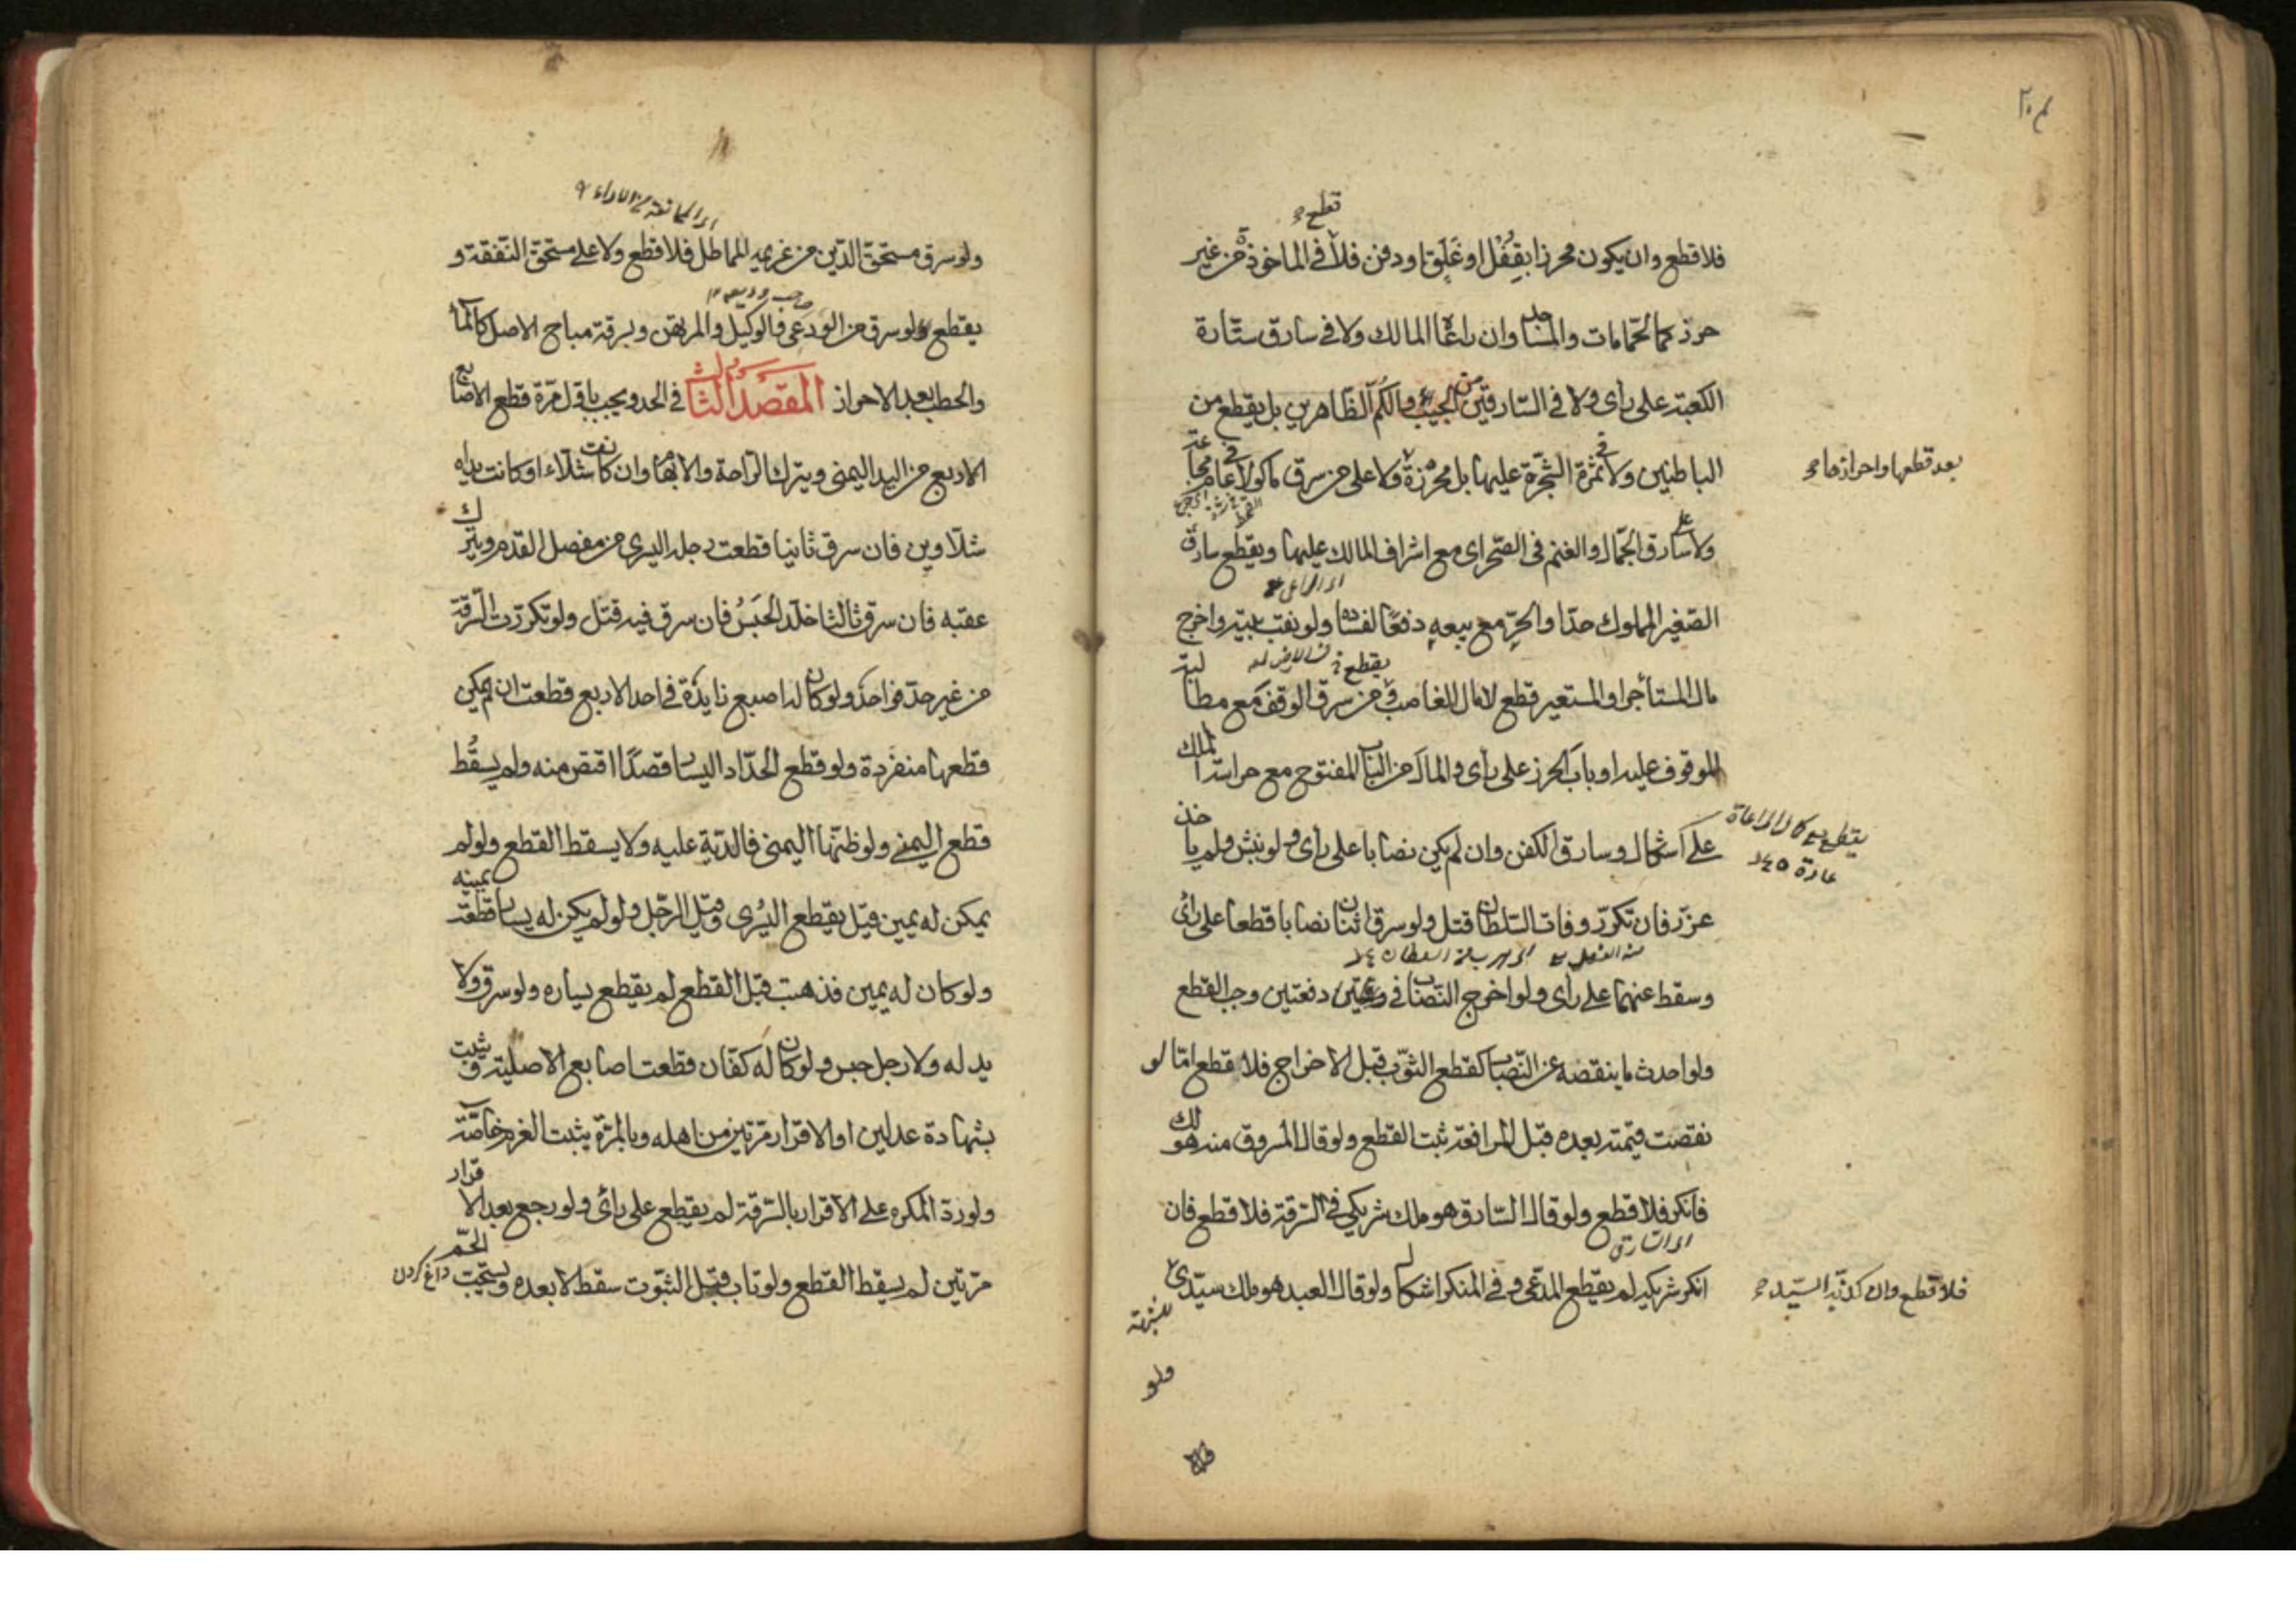 فلا قطع وان يكون محرزا بقفل او غلق او دفن فلا قطع في الماخوذ من غير
حرز كالحمامات والمساجد وان راعاها المالك ولا في سارق ستارة
الكعبة على رأى ولا فى السارق من الجيب والكم الظاهرين بل يقطع من
الباطنين ولا فى ثمرة الشجرة عليها بل محرزة ولا على من سرق مأكولا فى عام مجاعة
بعد قطعها واحرازها
ولا على سارق الجمال والغنم فى الصحراى مع اشراف المالك عليها ويقطع سارق
الصغير المملوك حدا والحر مع بيعه دفعا لفساده ولو نقب بيته واخرج
مال المستأجر او المستعير قطع لا مال الغاصب من سرق الوقف مع مطالبة
الموقوف عليه او باب الحرز على رأى والمال من الباب المفتوح مع حراسة المالك
على اشكال وسارق الكفن وان لم يكن نصابا على رأى ولو نبش ولم يأخذ
عزر فان تكرر وفات السلطان قتل ولو سرق اثنان نصابا قطعا على رأى
وسقط عنهما على رأى ولو اخرج النصاب فى دفعتين وجب القطع
ولو احدث ما ينقصه عن النصاب كقطع الثوب قبل الاخراج فلا قطع اما لو
نقصت قيمته بعده قبل المرافعة ثبت القطع ولو قال المسروق منه هو لك
فانكر فلا قطع ولو قال السارق هو ملك شريكي فى السرقة فلا قطع فان
اى السارق
انكر شريكه لم يقطع المدعى وفى المنكر اشكال ولو قال العبد هو ملك سيدى
فلا قطع وان كذبه السيد
ولو
ولو سرق مستحق الدين من غريمه المماطل فلا قطع ولا على مستحق النفقة و
يقطع لو سرق من الودعى والوكيل والمرتهن وبسرقة مباح الاصل كالماء
والحطب بعد الاحراز المقصد الثالث فى الحد ويجب باول مرة قطع الاصابع
الاربع من اليد اليمنى ويترك الراحة والابهام وان كانت شلاء او كانت يداه
شلاوين فان سرق ثانيا قطعت رجله اليسرى من مفصل القدم ويترك
عقبه فان سرق ثالثا خلد الحبس فان سرق فيه قتل ولو تكررت السرقة
من غير حد فواحد ولو كان له اصبع زايدة فى احد الاربع قطعت ان لم يمكن
قطعها منفردة ولو قطع الحداد اليسار قصدا اقتص منه ولم يسقط
قطع اليمنى ولو ظنها اليمنى فالدية عليه ولا يسقط القطع ولو لم
يمكن له يمين قيل يقطع اليسرى وقيل الرجل ولو لم يكن له يسار قطعت يمينه
ولو كان له يمين فذهبت قبل القطع لم يقطع يساره ولو سرق ولا
يد له ولا رجل حبس ولو كان له كفان قطعت اصابع الاصلية ويثبت
بشهادة عدلين او الاقرار مرتين من اهله وبالمرة يثبت الغرم خاصة
ولو رد المكره على الاقرار بالسرقة لم يقطع على رأى ولو رجع بعد الاقرار
مرتين لم يسقط القطع ولو تاب قبل الثبوت سقط لا بعده ويستحب الحسم
داغ كردن